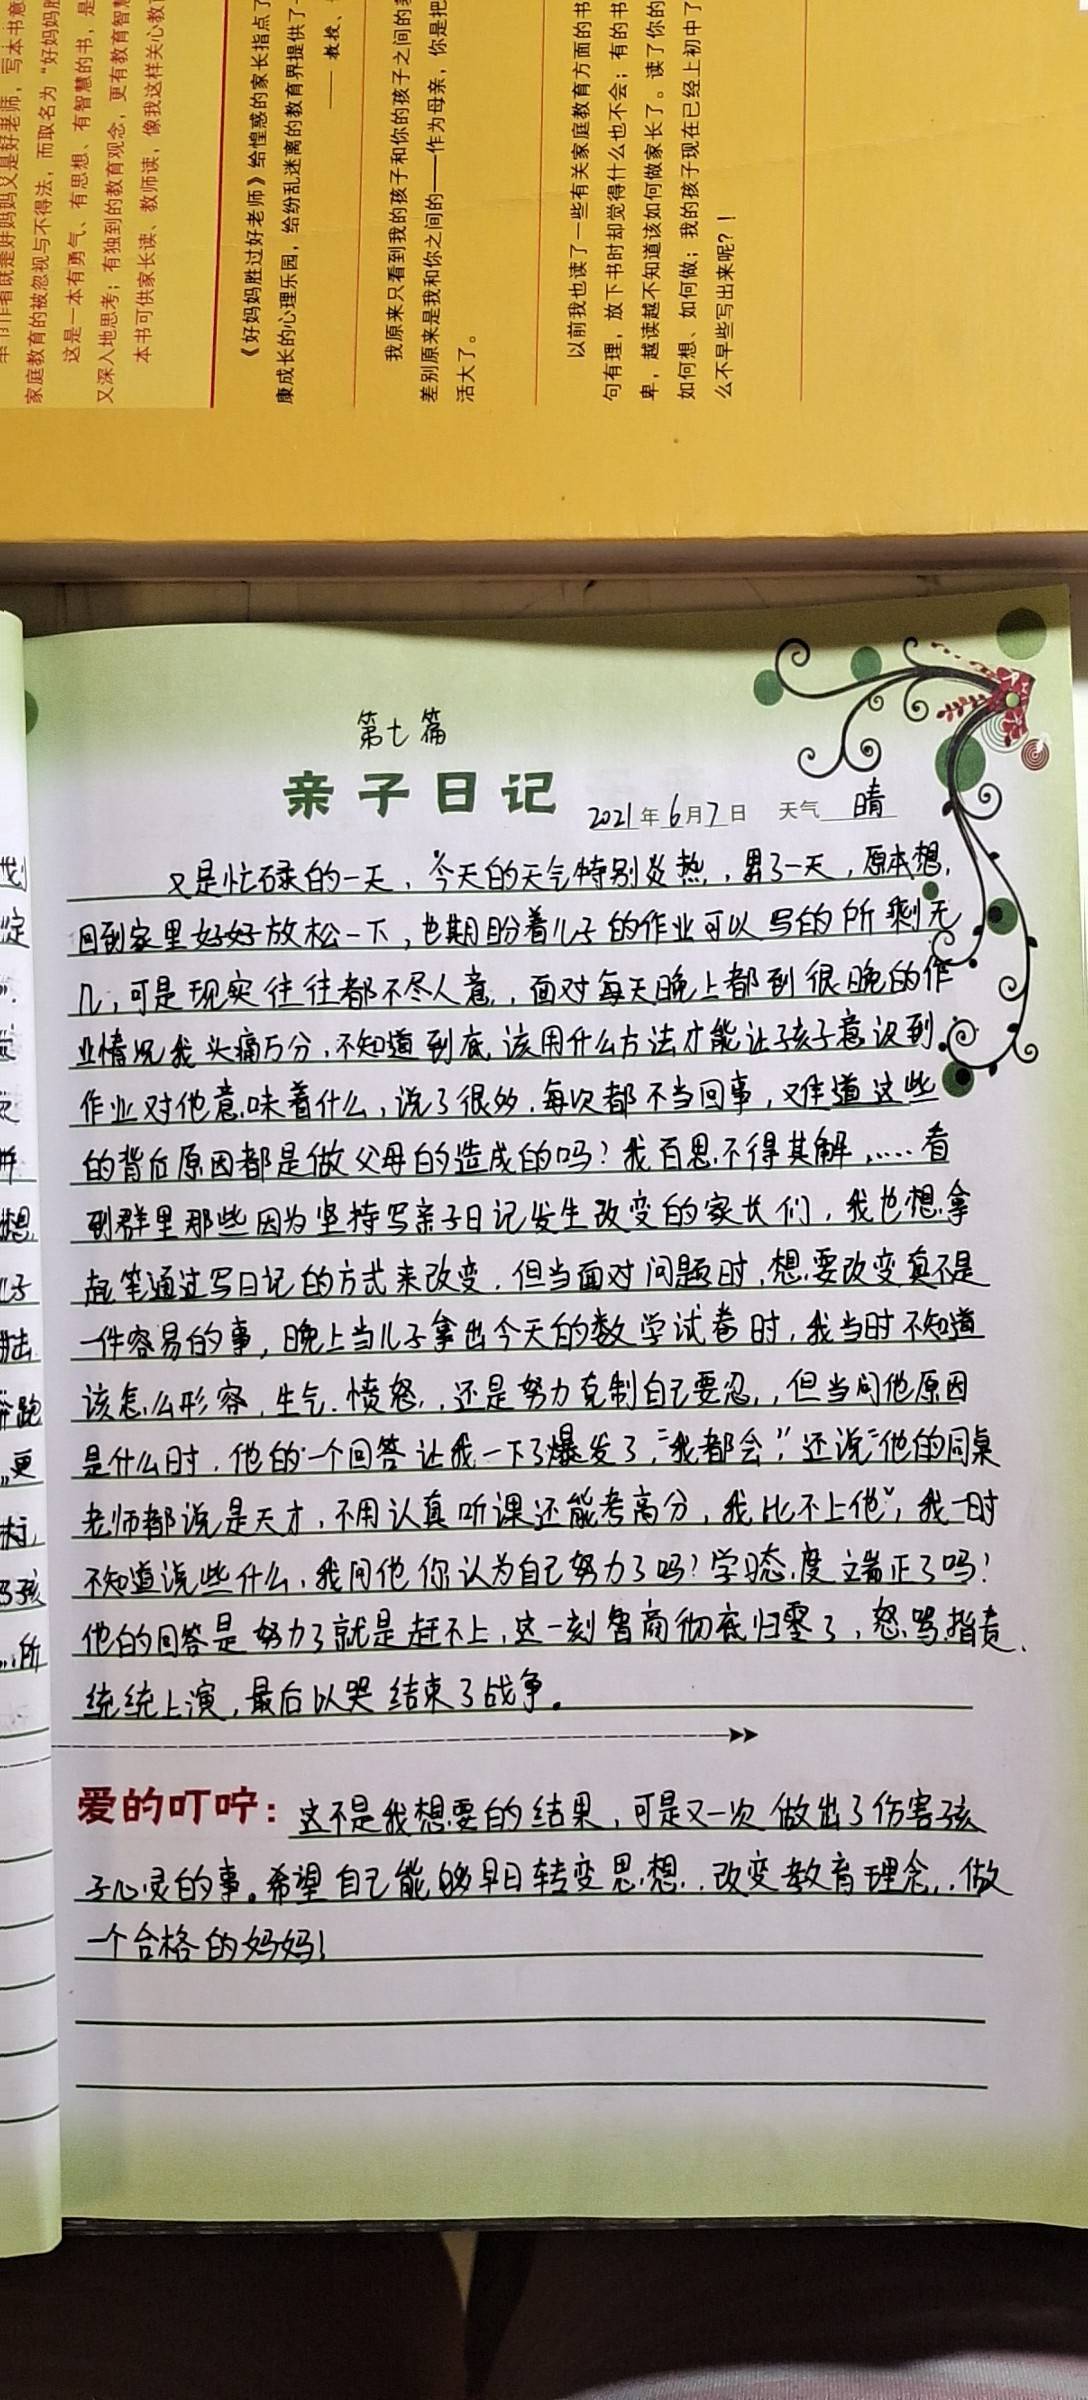 家庭教育的被忽视与不得法，而取名为“好妈妈胜
这是一本有勇气、有思想、有智慧的书，是
又深入地思考；有独到的教育观念，更有教育智慧
本书可供家长读、教师读，像我这样关心教育
《好妈妈胜过好老师》给惶惑的家长指点了
康成长的心理乐园，给纷乱迷离的教育界提供了
——教授、
我原来只看到我的孩子和你的孩子之间的差
差别原来是我和你之间的——作为母亲，你是把
活大了。
以前我也读了一些有关家庭教育方面的书
句有理，放下书时却觉得什么也不会；有的书
卑，越读越不知道该如何做家长了。读了你的
如何想、如何做；我的孩子现在已经上初中了
么不早些写出来呢？！
第七篇
亲子日记 2021年6月7日 天气 晴
又是忙碌的一天，今天的天气特别炎热，累了一天，原本想，
回到家里好好放松一下，也期盼着儿子的作业可以写的所剩无
几，可是现实往往都不尽人意，面对每天晚上都到很晚的作
业情况我头痛万分，不知道到底该用什么方法才能让孩子意识到
作业对他意味着什么，说了很多，每次都不当回事，难道这些
的背后原因都是做父母的造成的吗？我百思不得其解……看
到群里那些因为坚持写亲子日记发生改变的家长们，我也想拿
起笔通过写日记的方式来改变，但当面对问题时，想要改变真不是
一件容易的事，晚上当儿子拿出今天的数学试卷时，我当时不知道
该怎么形容，生气、愤怒，还是努力克制自己要忍，但当问他原因
是什么时，他的一个回答让我一下子爆发了，“我都会”，还说“他的同桌
老师都说是天才，不用认真听课还能考高分，我比不上他”，我一时
不知道说些什么，我问他你认为自己努力了吗？学习态度端正了吗？
他的回答是努力了就是赶不上，这一刻智商彻底归零了，怒骂指责、
统统上演，最后以哭结束了战争。
爱的叮咛：这不是我想要的结果，可是又一次做出了伤害孩
子心灵的事。希望自己能够早日转变思想，改变教育理念，做
一个合格的妈妈！